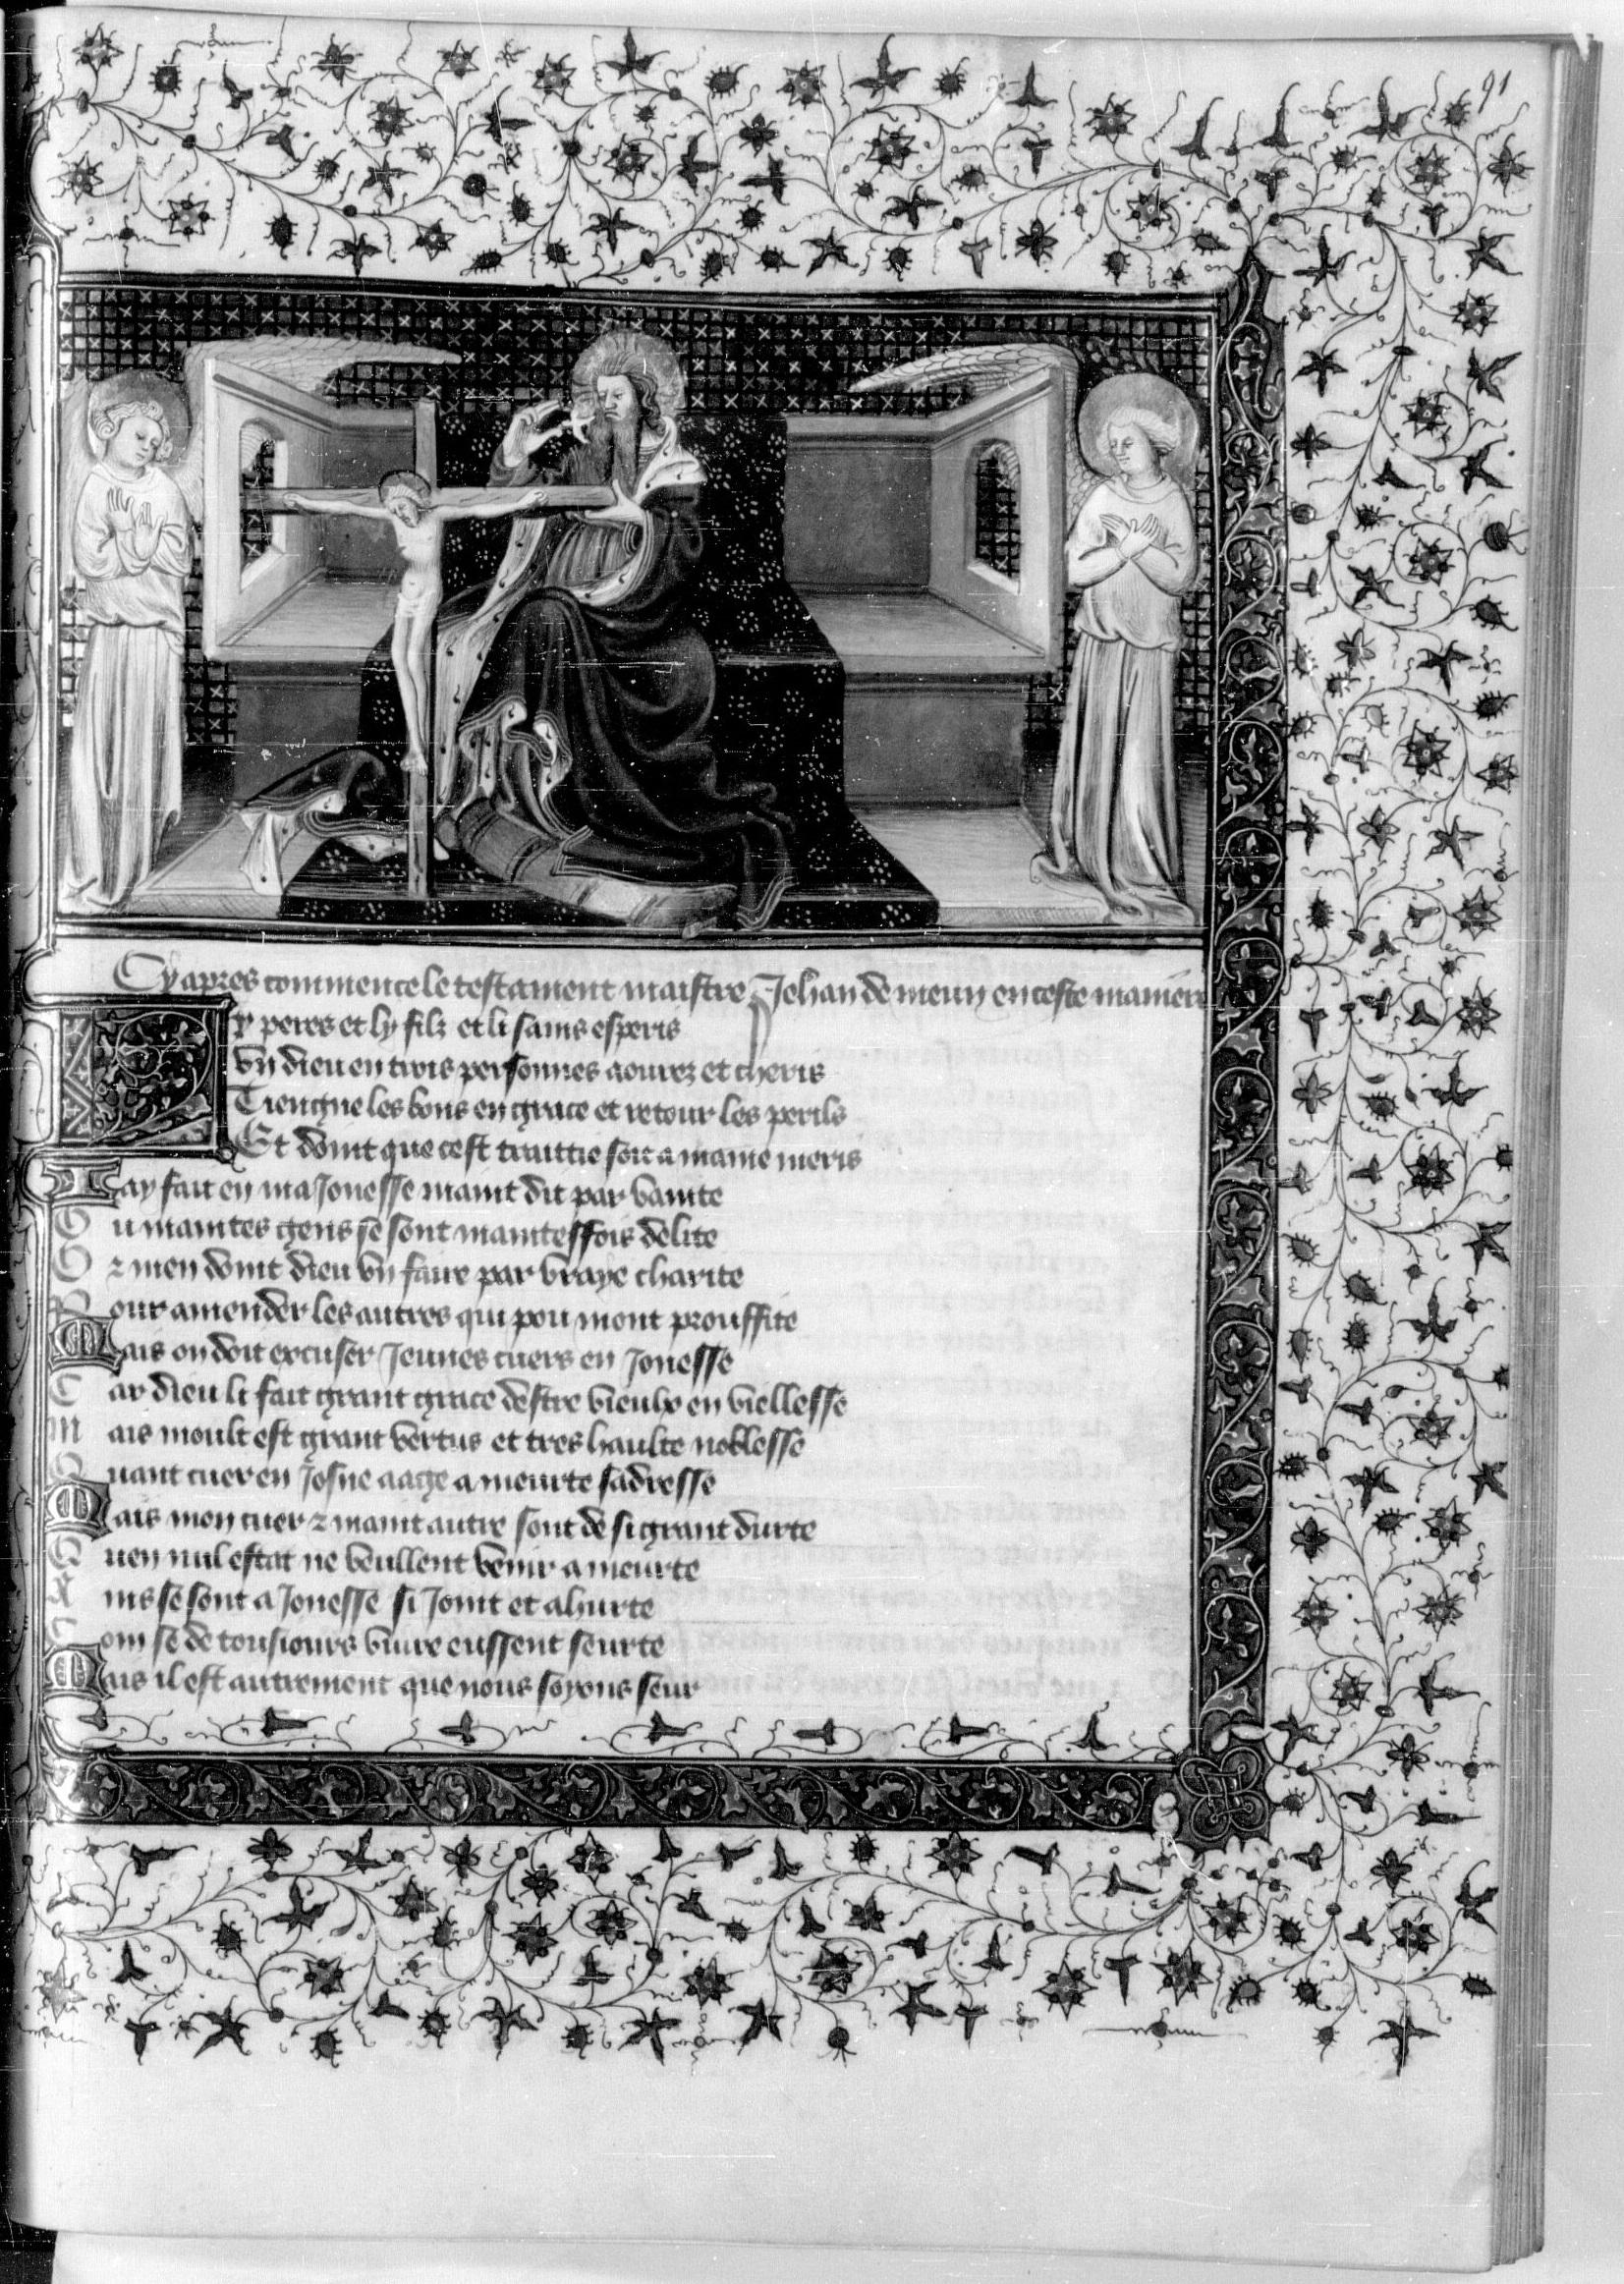 91
Cy apres commence le testament maistre Jehan de meun en ceste maniere
Ly peres et ly filz et li sains esperis
Vn dieu en trois personnes aourez et cheris
Tiengne les bons en grace et retour les perils
Et doint que cest traittie soit a mame meris
Jay fait en ma Jonesse maint dit par vanite
Ou maintes gens se sont maintesffois delite
Or men doint dieu vn faire par vraye charite
Pour amender les autres qui pou mont prouffite
Mais on doit excuser Jeunes cuers en Jonesse
Car dieu li fait grant grace destre vieulx en viellesse
Mais moult est grant vertus et tres haulte noblesse
Quant cuer en Josne aage a meurte sadresse
Mais mon cuer z maint autre sont de si grant durte
Quen nul estat ne veullent venir a meurte
Ains se sont a Jonesse si Joint et ahurte
Com se de tousiours viure eussent seurte
Mais il est autrement que nous soyons seur